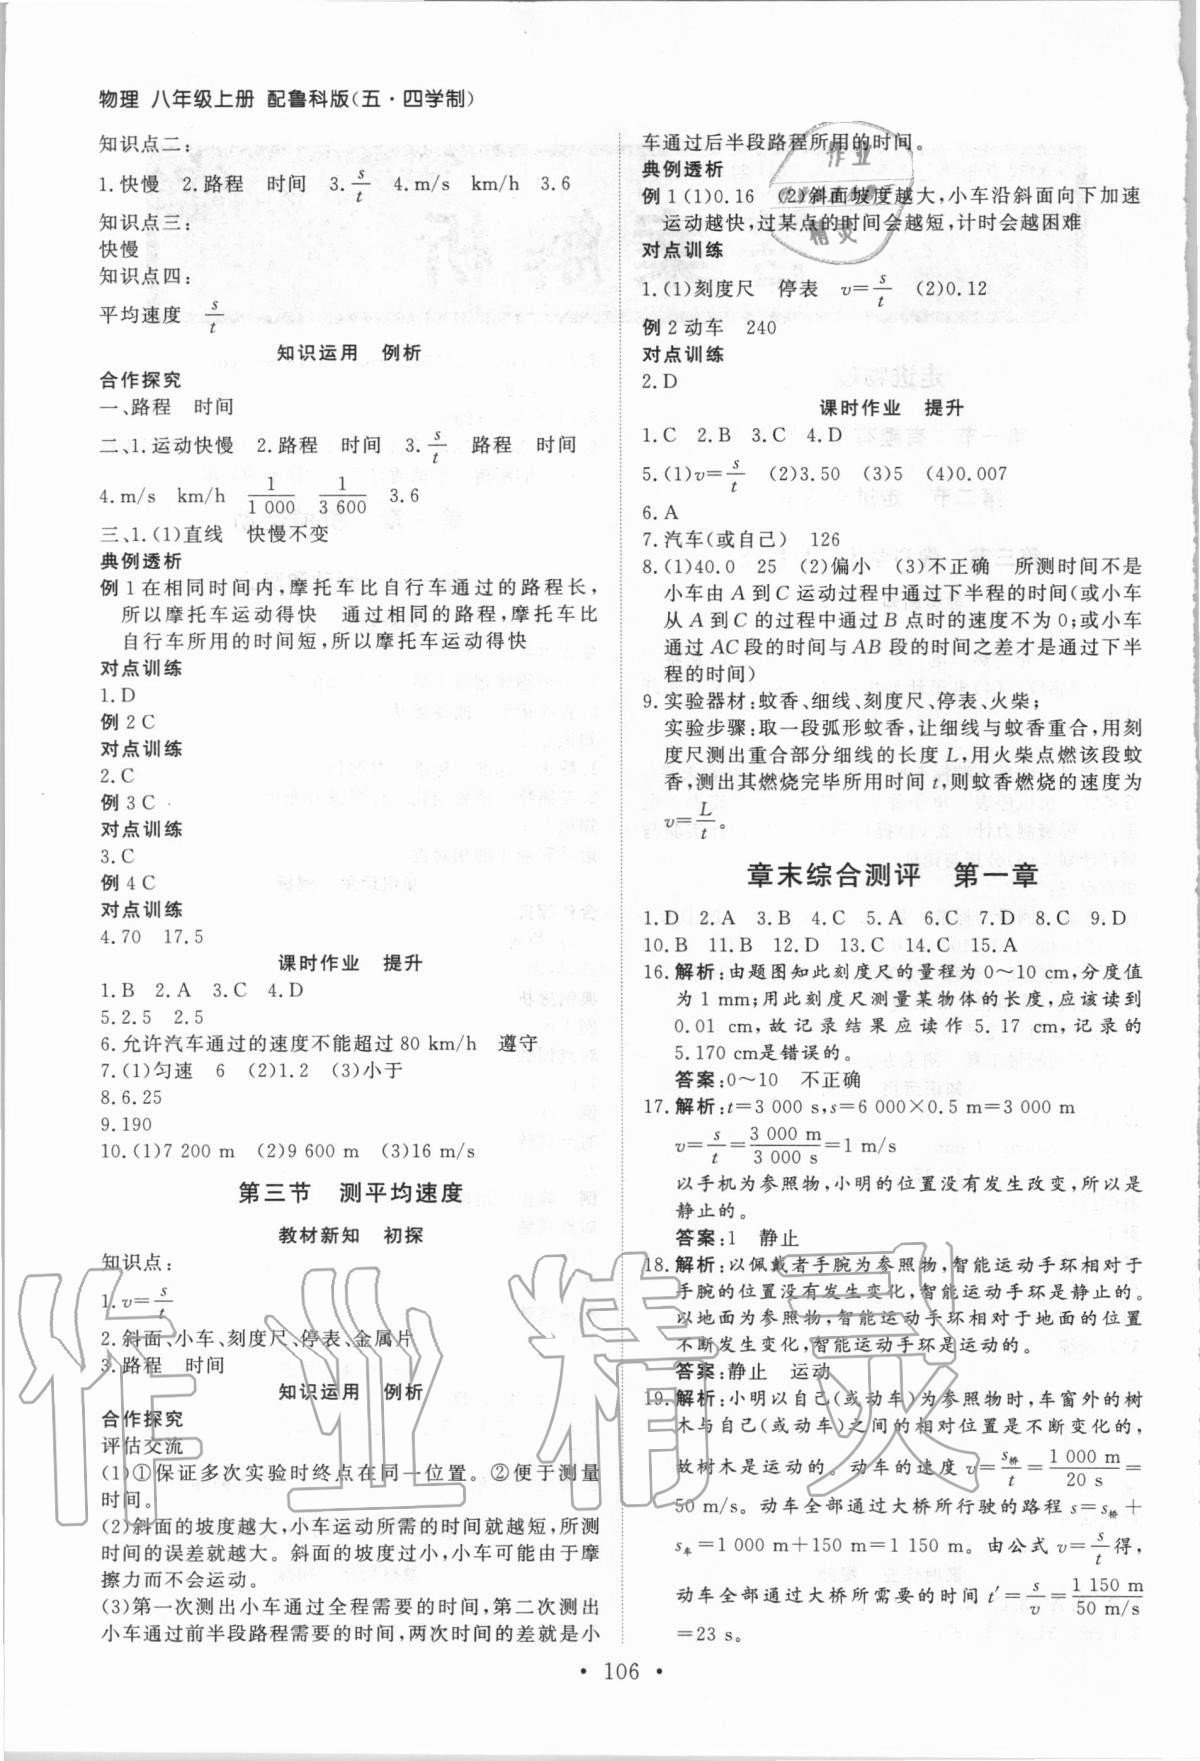 物理 八年级上册 配鲁科版(五·四学制)
知识点二:
1.快慢 2.路程 时间 3.s/t 4.m/s km/h 3.6
知识点三:
快慢
知识点四:
平均速度 s/t
知识运用 例析
合作探究
一、路程 时间
二、1.运动快慢 2.路程 时间 3.s/t 路程 时间
4.m/s km/h 1/1 000 1/3 600 3.6
三、1.(1)直线 快慢不变
典例透析
例1在相同时间内,摩托车比自行车通过的路程长,
所以摩托车运动得快 通过相同的路程,摩托车比
自行车所用的时间短,所以摩托车运动得快
对点训练
1.D
例2C
对点训练
2.C
例3C
对点训练
3.C
例4C
对点训练
4.70 17.5
课时作业 提升
1.B 2.A 3.C 4.D
5.2.5 2.5
6.允许汽车通过的速度不能超过80 km/h 遵守
7.(1)匀速 6 (2)1.2 (3)小于
8.6.25
9.190
10.(1)7 200 m (2)9 600 m (3)16 m/s
第三节 测平均速度
教材新知 初探
知识点:
1.v=s/t
2.斜面、小车、刻度尺、停表、金属片
3.路程 时间
知识运用 例析
合作探究
评估交流
(1)①保证多次实验时终点在同一位置。②便于测量
时间。
(2)斜面的坡度越大,小车运动所需的时间就越短,所测
时间的误差就越大。斜面的坡度过小,小车可能由于摩
擦力而不会运动。
(3)第一次测出小车通过全程需要的时间,第二次测出
小车通过前半段路程需要的时间,两次时间的差就是小
车通过后半段路程所用的时间。
典例透析
例1(1)0.16 (2)斜面坡度越大,小车沿斜面向下加速
运动越快,过某点的时间会越短,计时会越困难
对点训练
1.(1)刻度尺 停表 v=s/t (2)0.12
例2动车 240
对点训练
2.D
课时作业 提升
1.C 2.B 3.C 4.D
5.(1)v=s/t (2)3.50 (3)5 (4)0.007
6.A
7.汽车(或自己) 126
8.(1)40.0 25 (2)偏小 (3)不正确 所测时间不是
小车由A到C运动过程中通过下半程的时间(或小车
从A到C的过程中通过B点时的速度不为0;或小车
通过AC段的时间与AB段的时间之差才是通过下半
程的时间)
9.实验器材:蚊香、细线、刻度尺、停表、火柴;
实验步骤:取一段弧形蚊香,让细线与蚊香重合,用刻
度尺测出重合部分细线的长度L,用火柴点燃该段蚊
香,测出其燃烧完毕所用时间t,则蚊香燃烧的速度为
v=L/t。
章末综合测评 第一章
1.D 2.A 3.B 4.C 5.A 6.C 7.D 8.C 9.D
10.B 11.B 12.D 13.C 14.C 15.A
16.解析:由题图知此刻度尺的量程为0~10 cm,分度值
为1 mm;用此刻度尺测量某物体的长度,应该读到
0.01 cm,故记录结果应读作5.17 cm,记录的
5.170 cm是错误的。
答案:0~10 不正确
17.解析:t=3 000 s,s=6 000×0.5 m=3 000 m
v=s/t=3 000 m/3 000 s=1 m/s
以手机为参照物,小明的位置没有发生改变,所以是
静止的。
答案:1 静止
18.解析:以佩戴者手腕为参照物,智能运动手环相对于
手腕的位置没有发生变化,智能运动手环是静止的。
以地面为参照物,智能运动手环相对于地面的位置
不断发生变化,智能运动手环是运动的。
答案:静止 运动
19.解析:小明以自己(或动车)为参照物时,车窗外的树
木与自己(或动车)之间的相对位置是不断变化的,
故树木是运动的。动车的速度v=s桥/t=1 000 m/20 s=
50 m/s。动车全部通过大桥所行驶的路程s=s桥+
s车=1 000 m+150 m=1 150 m。由公式v=s/t得,
动车全部通过大桥所需要的时间t′=s/v=1 150 m/50 m/s
=23 s。
• 106 •
作业
精灵
作业精灵